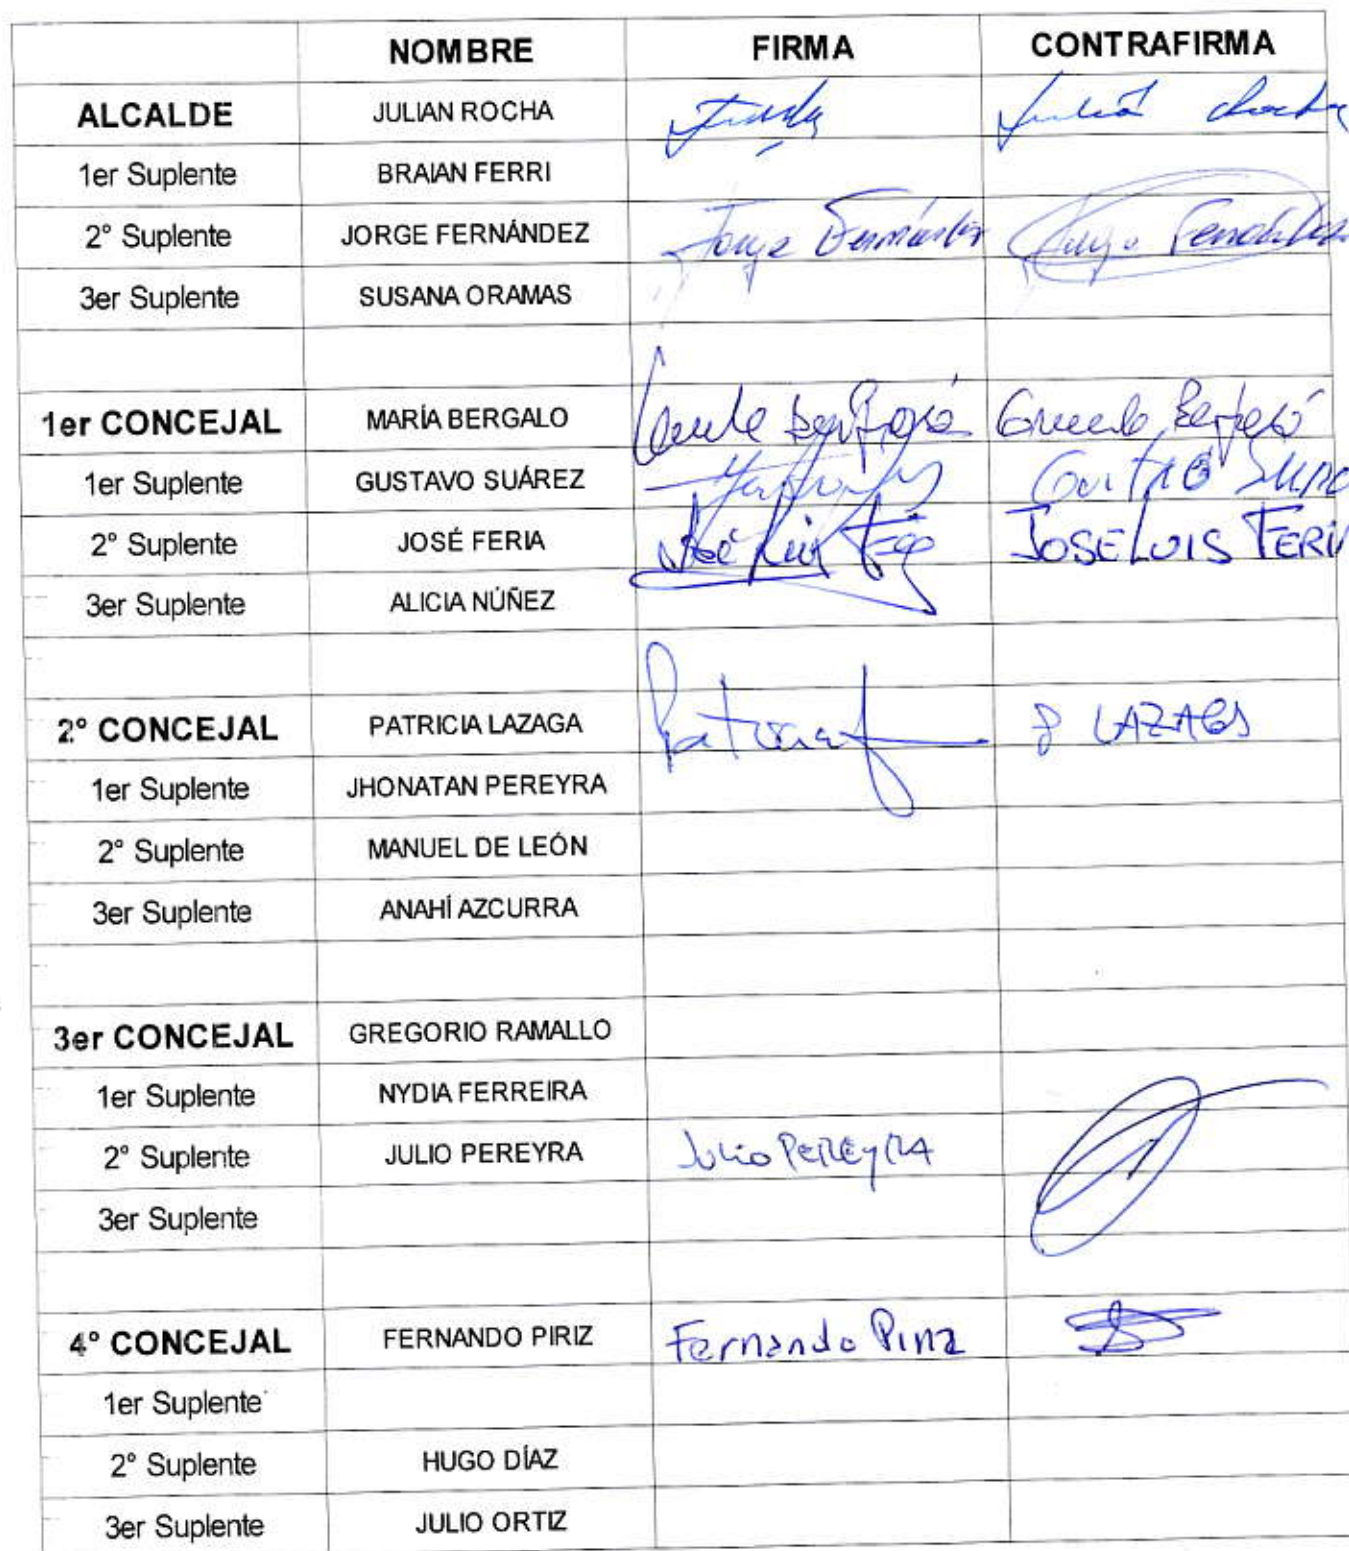 NOMBRE FIRMA CONTRAFIRMA
ALCALDE JULIAN ROCHA
1er Suplente BRAIAN FERRI
2° Suplente JORGE FERNÁNDEZ Jorge Fernández Fernández
3er Suplente SUSANA ORAMAS
1er CONCEJAL MARÍA BERGALO
1er Suplente GUSTAVO SUÁREZ
2° Suplente JOSÉ FERIA José Luis JOSE LUIS FERIA
3er Suplente ALICIA NÚÑEZ
2° CONCEJAL PATRICIA LAZAGA P LAZAGA
1er Suplente JHONATAN PEREYRA
2° Suplente MANUEL DE LEÓN
3er Suplente ANAHÍ AZCURRA
3er CONCEJAL GREGORIO RAMALLO
1er Suplente NYDIA FERREIRA
2° Suplente JULIO PEREYRA Julio PEREyRA
3er Suplente
4° CONCEJAL FERNANDO PIRIZ Fernando Piriz
1er Suplente
2° Suplente HUGO DÍAZ
3er Suplente JULIO ORTIZ